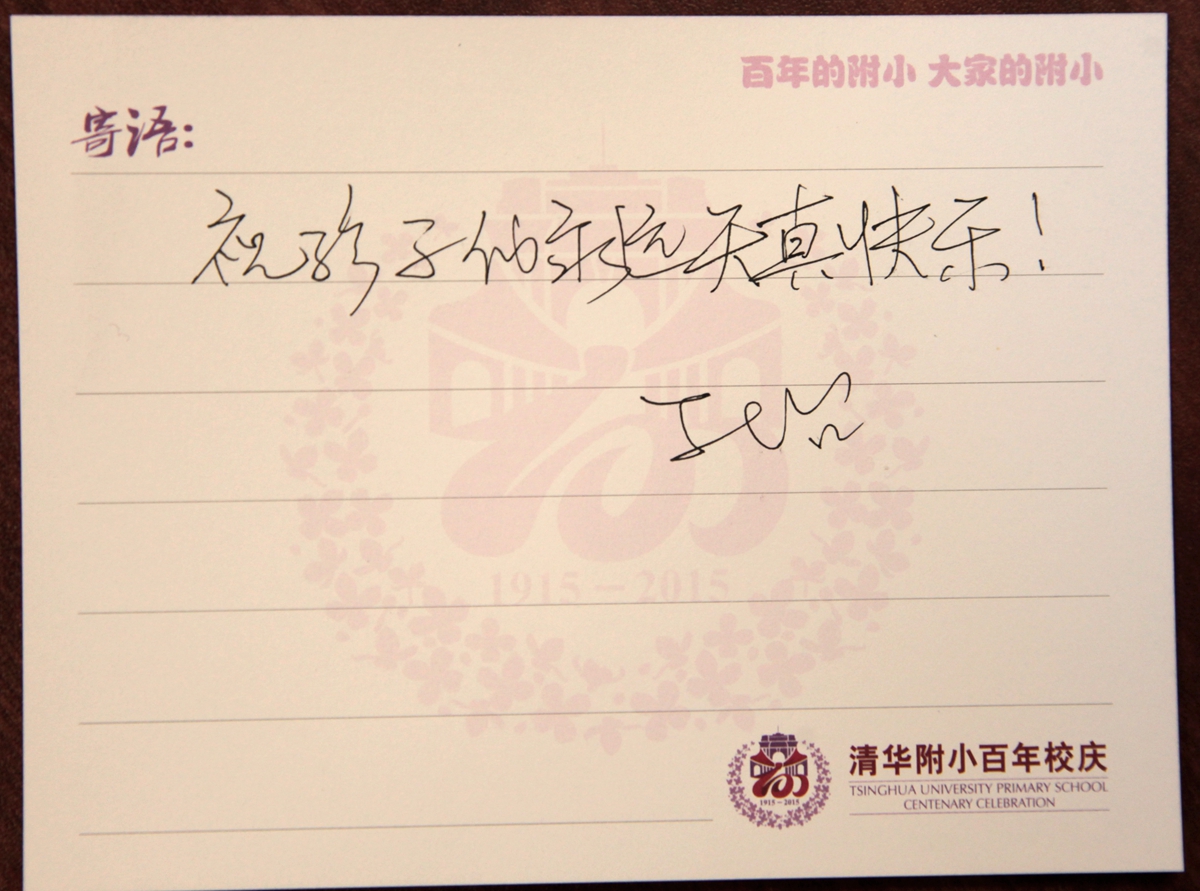 百年的附小 大家的附小
寄语:
祝孩子们永远天真快乐!
1915-2015
1915-2015
清华附小百年校庆
TSINGHUA UNIVERSITY PRIMARY SCHOOL
CENTENARY CELEBRATION